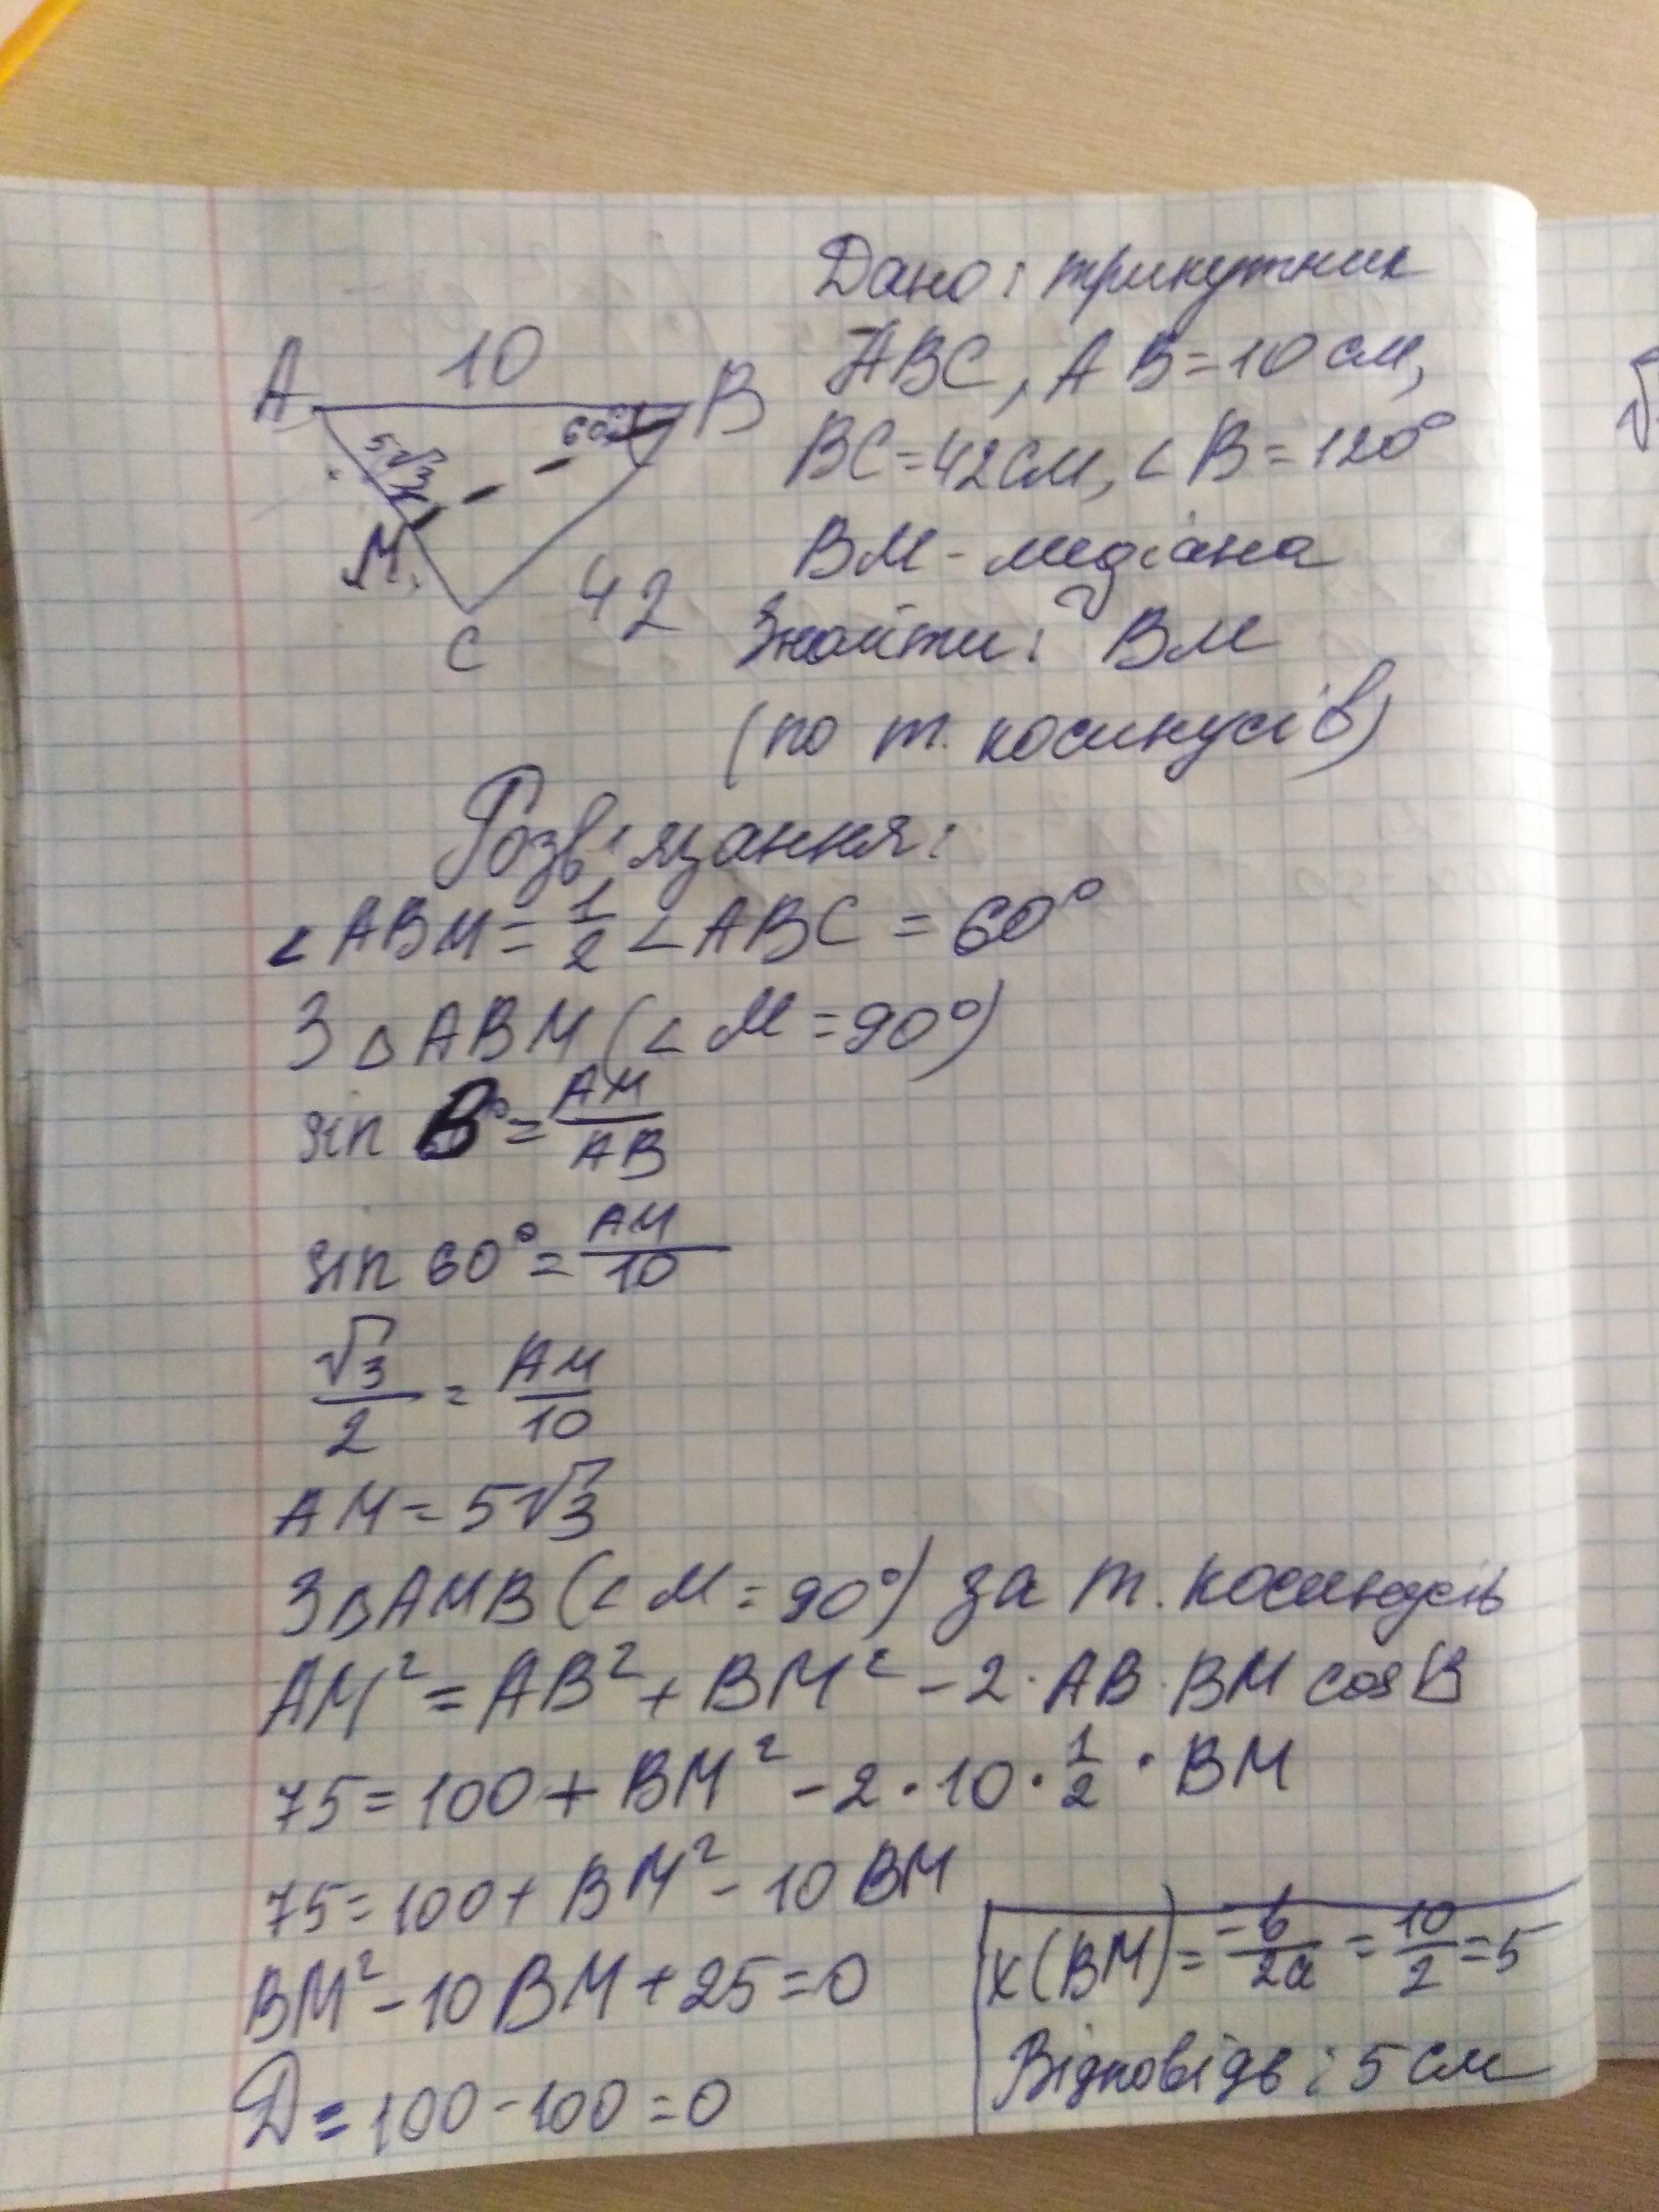 Дано: трикутник
ABC, AB=10см,
BC=42см, ∠B=120°
BM - медіана
Знайти: BM
(по т. косинусів)
A 10 B
5√3 60°
M
42
C
Розв'язання:
∠ABM = 1/2 ∠ABC = 60°
З △ABM (∠M = 90°)
sin B = AM/AB
sin 60° = AM/10
√3/2 = AM/10
AM = 5√3
З △AMB (∠M = 90°) за т. косинусів
AM² = AB² + BM² - 2·AB·BM cos B
75 = 100 + BM² - 2·10·1/2·BM
75 = 100 + BM² - 10BM
BM² - 10BM + 25 = 0
D = 100 - 100 = 0
x(BM) = -b/2a = 10/2 = 5
Відповідь: 5 см